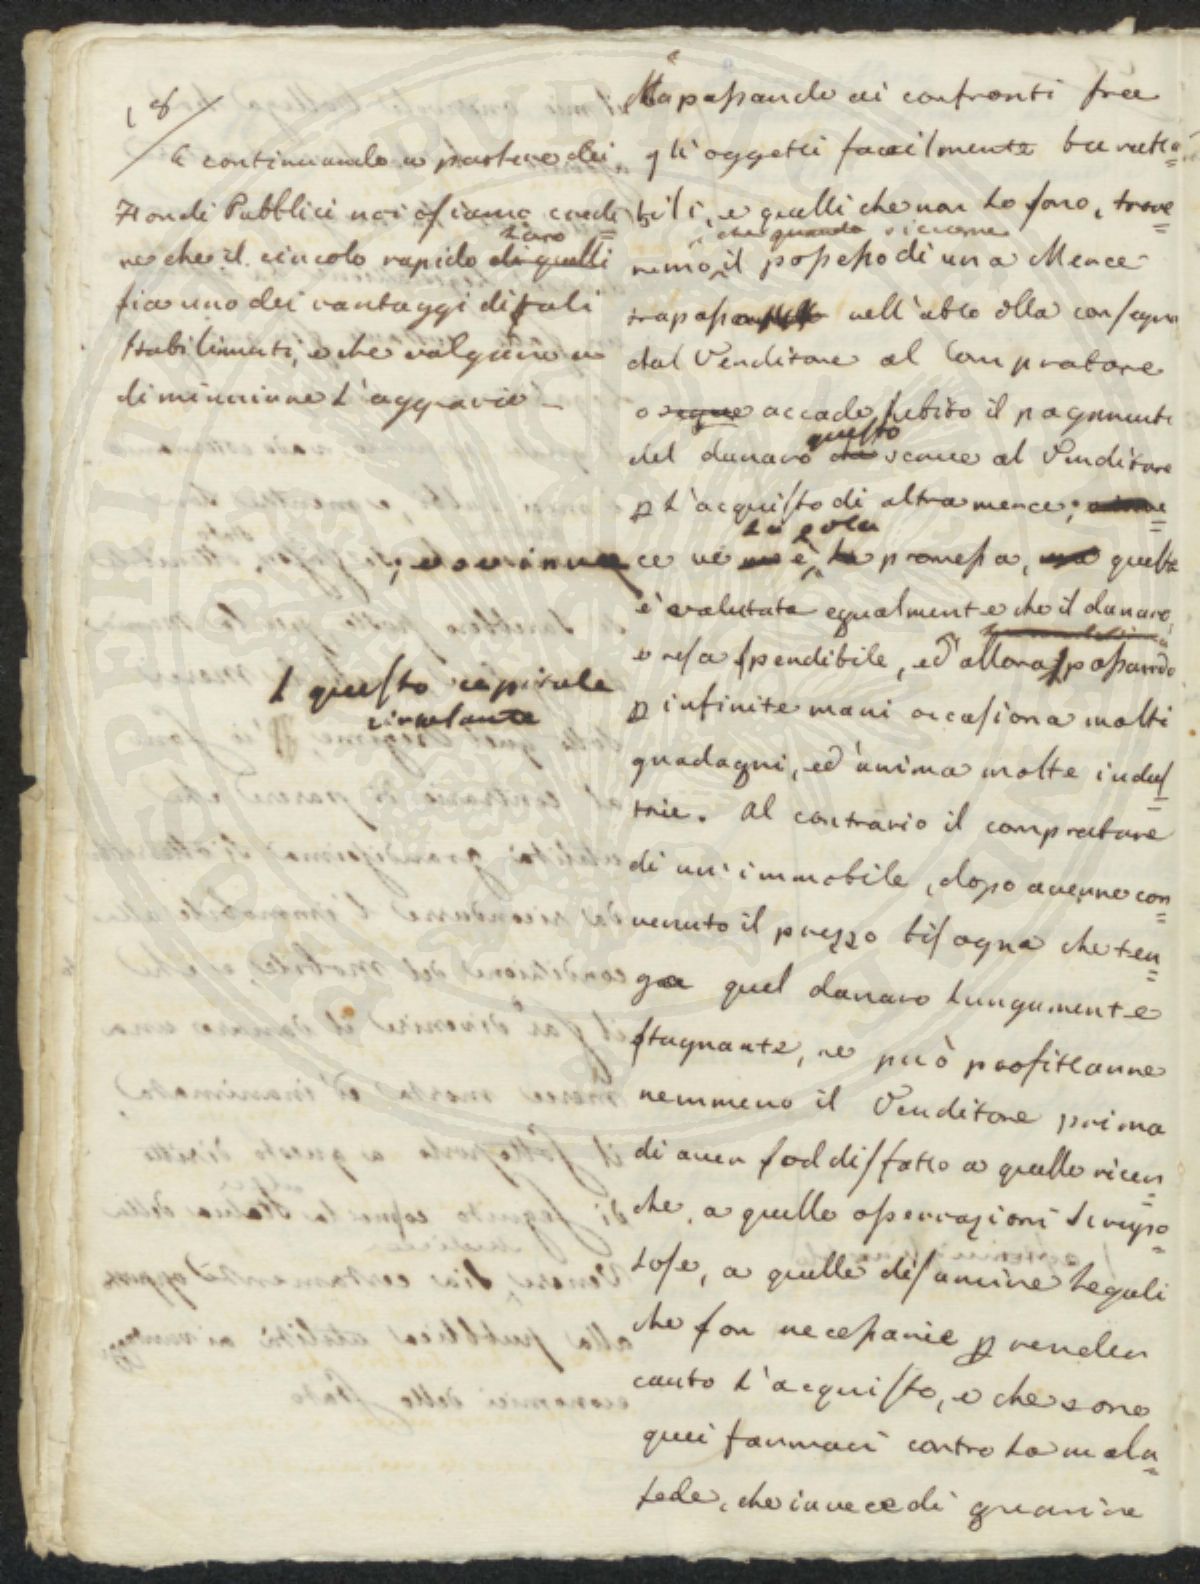 18
E continuando a parlare dei
Fondi Pubblici noi osiamo crede=
re che il circolo rapido loro di quelli
sia uno dei vantaggi di tali
stabilimenti, e che valgano a
diminuirne l'aggravio _
; e se invece
questo capitale
circolante
Ma passando ai confronti fra
gli oggetti facilmente baratta=
bili, e quelli che non lo sono, trove=
remo, che quando siccome
il possesso di una Merce
trapassa nell'atto della consegna
dal Venditore al Compratore
o segue accade subito il pagamento
del danaro che questo serve al Venditore
p l'acquisto di altra merce;
ce ve ne è la la sola promessa, ma questa
è valutata egualmente che il danaro,
e resa spendibile, ed allora passando
p infinite mani occasiona molti
guadagni, ed anima molte indus=
trie. Al contrario il compratore
di un'immobile, dopo averne con=
venuto il prezzo bisogna che ten=
ga quel danaro lungamente
stagnante, ne può profittarne
nemmeno il Venditore prima
di aver soddisfatto a quelle ricer=
che, a quelle osservazioni scrupo=
lose, a quelle disamine legali
che son necessarie p render
cauto l'acquisto, e che sono
quei farmaci contro la mala=
fede, che invece di guarire